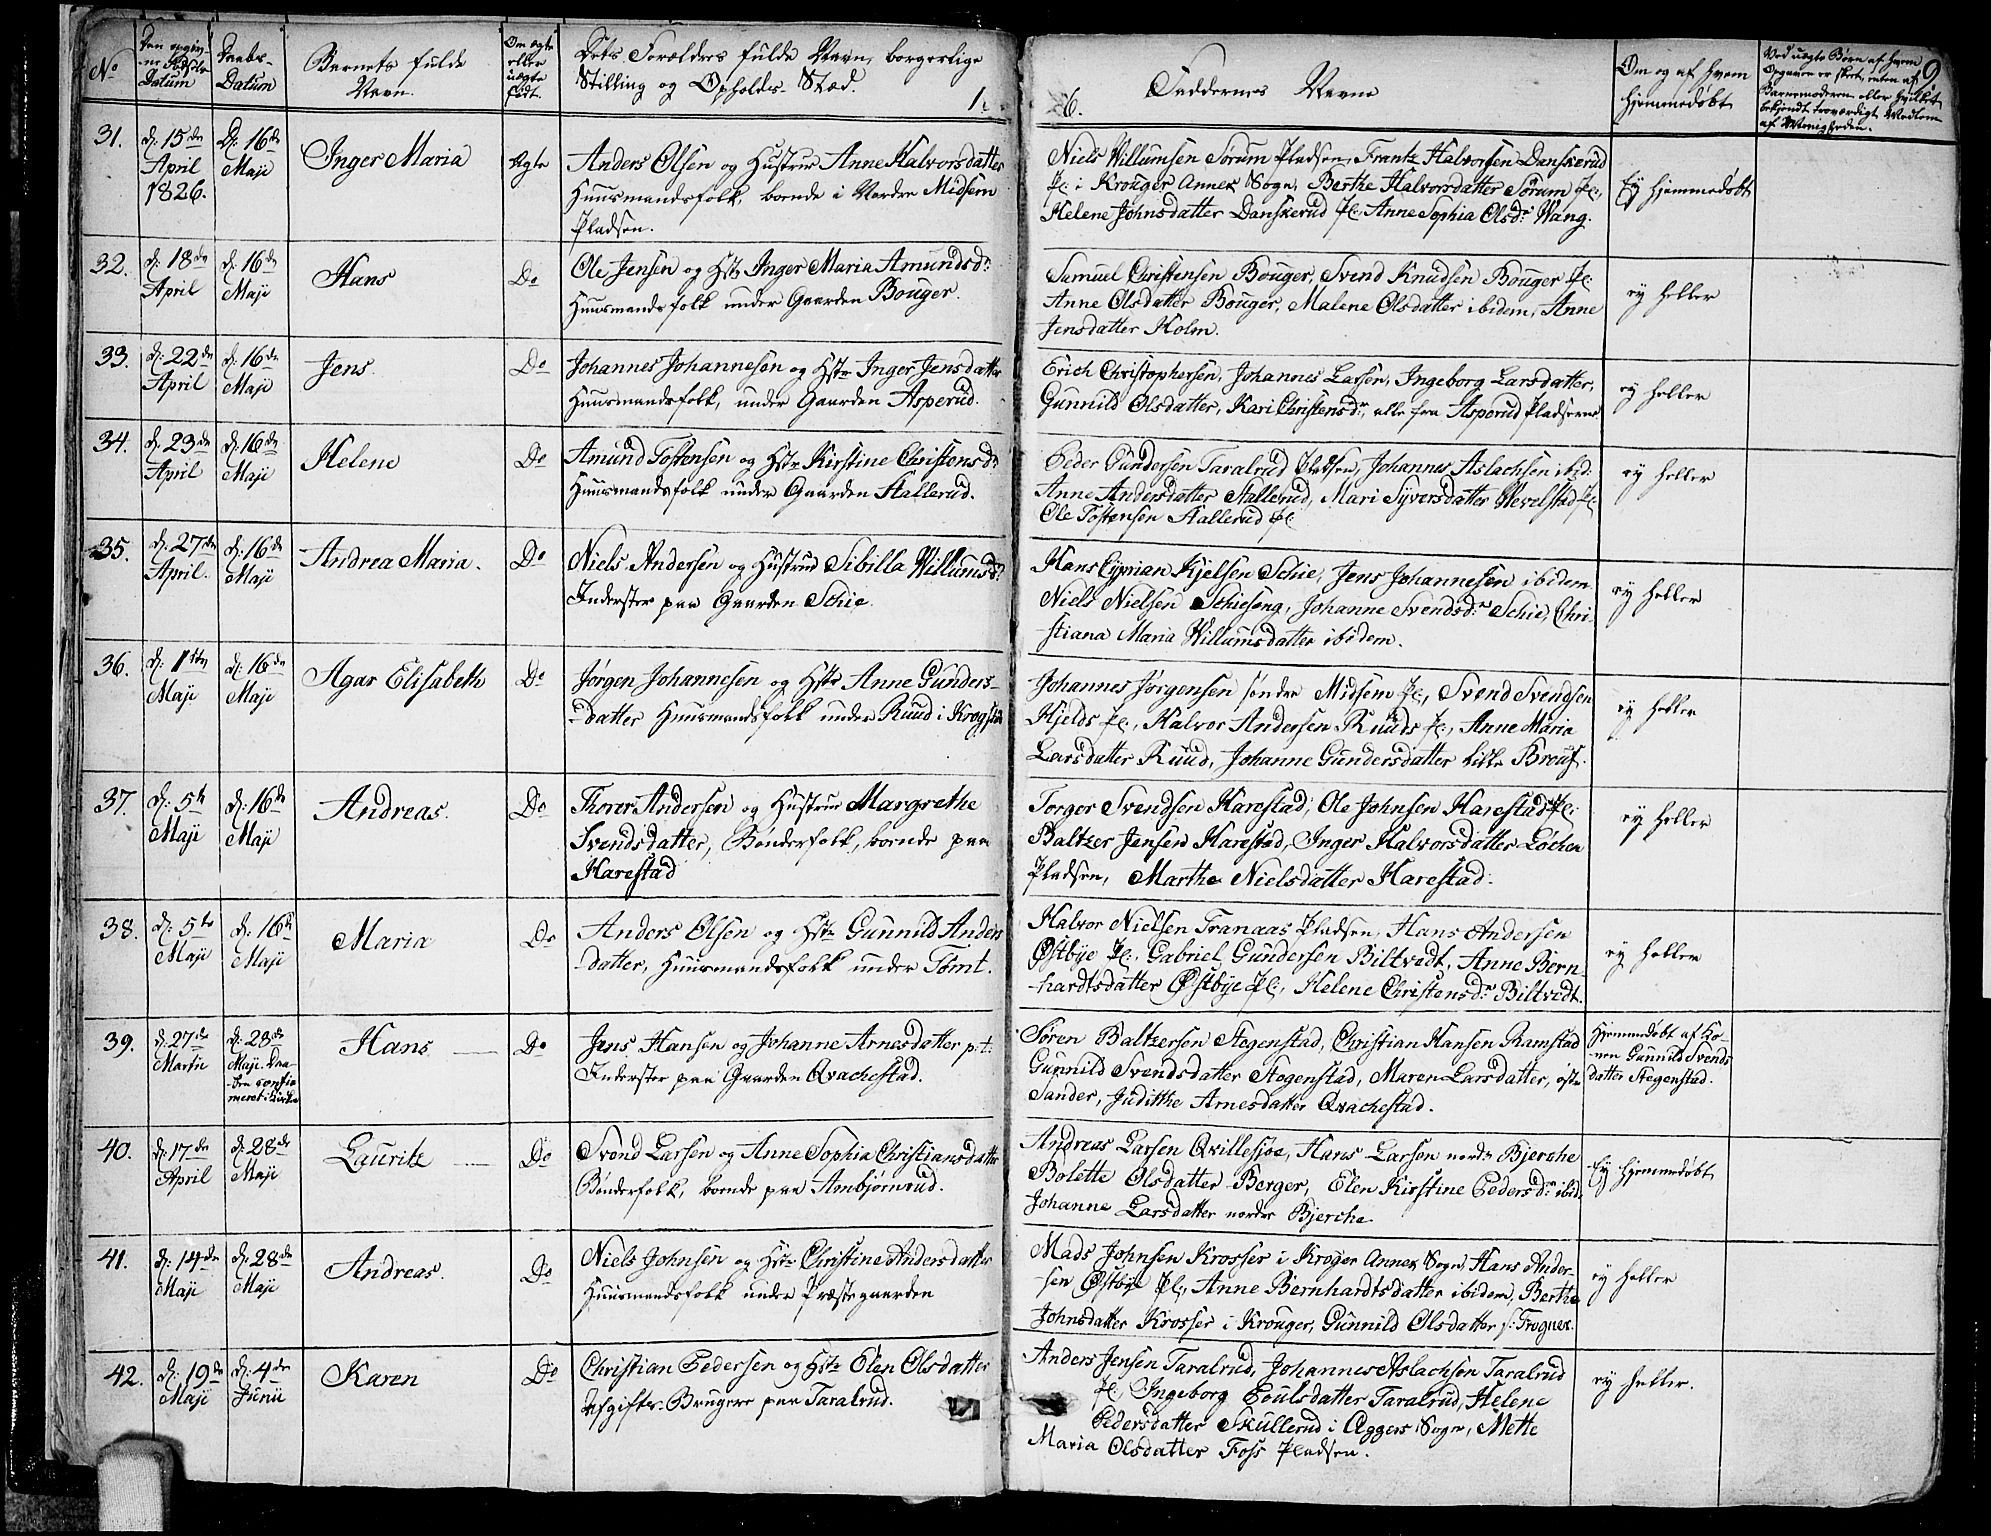 No
Den opgiv-
ne Fødsels
Datum
Daabs-
Datum
Barnets fulde
Navn.
Om ægte
eller
uægte
født.
Dets Forældres fulde Navn, borgerlige
Stilling og Opholds-Stæd.
1.
6.
Faddernes Navne
Om og af hvem
hjemmedøbt
Ved uægte Børn af hvem
Opgaven er skeet, enten af
Barnemoderen eller hvilket
bekjendt troværdigt Medlem
af Menigheden.
9
31.
d: 15de
April
1826.
D: 16de
Maji
Inger Maria
Ægte
Anders Olsen og Hustrue Anne Halvorsdatter
Huusmandsfolk, boende i Nordre Midsem
Pladsen.
Niels Willumsen Sørum Pladsen, Frantz Halvorsen Danskerud
Pl: i Krouger Annex Sogn, Berthe Halvorsdatter Sørum Pl:,
Helene Johnsdatter Danskerud Pl:, Anne Sophia Olsdr Wang.
Ey hjemmedøbt
32.
d: 18de
April
d: 16de
Maji
Hans
Do
Ole Jensen og Hstr Inger Maria Amundsdr
Huusmandsfolk under Gaarden Bouger.
Samuel Christensen Bouger, Svend Knudsen Bouger Pl:
Anne Olsdatter Bouger, Malene Olsdatter ibidem, Anne
Jensdatter Holm.
ey heller
33.
d: 22de
April
d: 16de
Maji
Jens
Do
Johannes Johannesen og Hstr Inger Jensdatter
Huusmandsfolk, under Gaarden Asperud.
Erich Christophersen, Johannes Larsen, Ingeborg Larsdatter,
Gunnild Olsdatter, Kari Christensdr, alle fra Asperud Pladserne
ey heller
34.
d: 23de
April
d: 16de
Maji
Helene
Do
Amund Tostensen og Hstr Kirstine Christensdr
Huusmandsfolk under Gaarden Stallerud.
Peder Gundersen Taralrud Pladsen, Johannes Aslachsen ibid:
Anne Andersdatter Stallerud, Mari Syversdatter Wevelstad Pl:
Ole Tostensen Stallerud Pl:
ey heller
35.
d: 27de
April.
d: 16de
Maji
Andrea Maria.
Do
Niels Andersen og Hustrue Sibilla Willumsdr
Inderster paa Gaarden Schie.
Hans Cyprian Kjelsen Schie, Jens Johannesen ibidem
Niels Nielsen Schieseng, Johanne Svendsdr Schie, Chri-
stiana Maria Willumsdatter ibidem.
ey heller
36.
d: 1ste
Maji
d: 16de
Maji
Agar Elisabeth
Do
Jørgen Johannesen og Hstr Anne Gunders-
datter Huusmandsfolk under Ruud i Krogstad
Johannes Jørgensen søndre Midsem Pl:, Svend Svendsen
Kjelds Pl:, Halvor Andersen Ruuds Pl:, Anne Maria
Larsdatter Ruud, Johanne Gundersdatter lille Brouf.
ey heller
37.
d: 5te
Maji
d: 16de
Maji
Andreas.
Do
Thorer Andersen og Hustrue Margrethe
Svendsdatter, Bønderfolk, boende paa
Harestad
Torger Svendsen Harestad, Ole Johnsen Harestad Pl:
Baltzer Jensen Harestad, Inger Halvorsdatter Løchen
Pladsen, Marthe Nielsdatter Harestad.
ey heller
38.
d: 5te
Maji
d: 16de
Maji
Maria
Do
Anders Olsen og Hstr Gunnild Anders
datter, Huusmandsfolk under Tømt.
Halvor Nielsen Tranaas Pladsen, Hans Andersen
Østbye Pl:, Gabriel Gundersen Biltvedt, Anne Bern-
hardtsdatter Østbye Pl:, Helene Christensdr Biltvedt.
ey heller
39.
d: 27de
Martii
d: 28de
Maji Daa-
ben confir
meret i Kirken
Hans
Do
Jens Hansen og Johanne Arnesdatter p.t.
Inderster paa Gaarden Qvachestad.
Søren Baltzersen Stegenstad, Christian Hansen Ramstad
Gunnild Svendsdatter Stegenstad, Maren Larsdatter, østre
Sander, Judithe Arnesdatter Qvachestad.
Hjemmedøbt af Ko-
nen Gunnild Svends
datter Stegenstad.
40.
d: 17de
April
d: 28de
Maji
Lauritz
Do
Svend Larsen og Anne Sophia Christiansdatter
Bønderfolk, boende paa Ambjørnrud.
Andreas Larsen Qvillesjøe, Hans Larsen nordr Bjerche
Bolette Olsdatter Berger, Elen Kirstine Pedersdr ibid.
Johanne Larsdatter nordre Bjerche
Ey hjemmedøbt
41.
d: 14de
Maji
d: 28de
Maji
Andreas.
Do
Niels Johnsen og Hstr Christine Andersdatter
Huusmandsfolk under Præstegaarden
Mads Johnsen Krosser i Kroger Annex Sogn, Hans Ander-
sen Østbye Pl:, Anne Bernhardtsdatter ibidem, Berthe
Johnsdatter Krosser i Krouger, Gunnild Olsdatter s: Trogner.
ey heller
42.
d: 19de
Maji
d: 4de
Junii
Karen
Do
Christian Pedersen og Hstr Elen Olsdatter
Afgifts-Brugere paa Taralrud.
Anders Jensen Taralrud, Johannes Aslachsen Taralrud
Pl: Ingeborg Poulsdatter Taralrud, Helene
Pedersdatter Skullerud i Aggers Sogn, Mette
Maria Olsdatter Foss Pladsen.
ey heller.